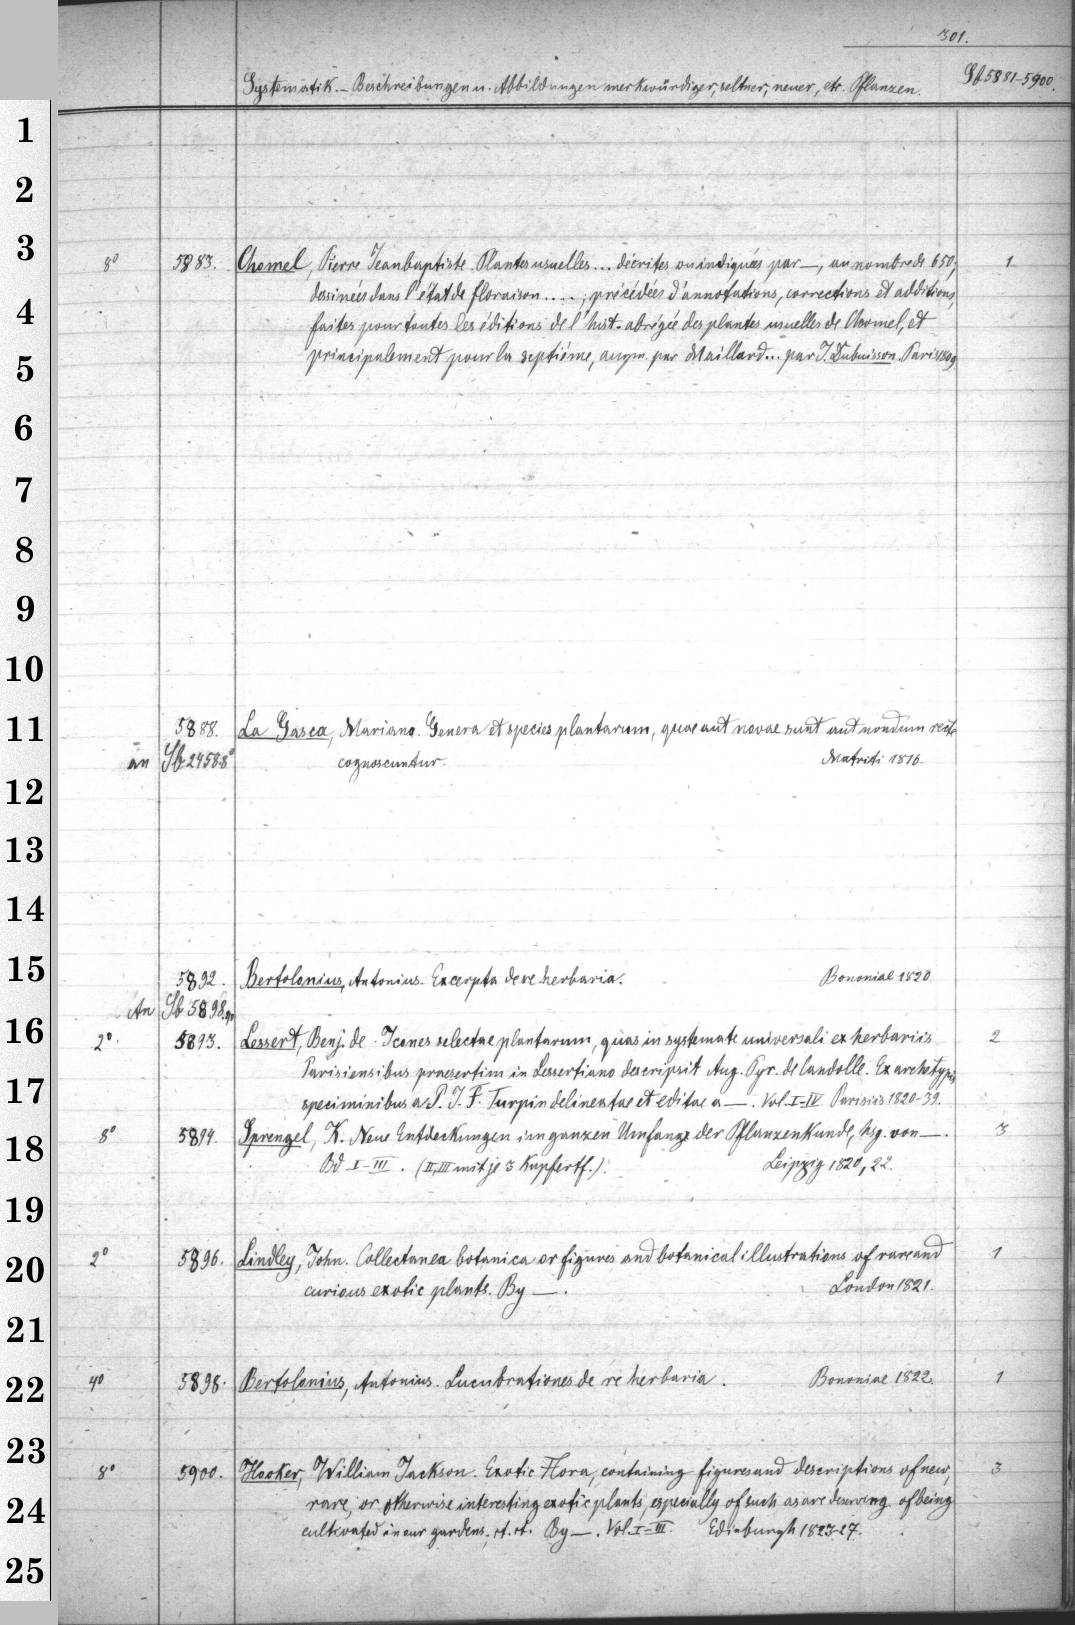 301.
Systematik. – Beschreibungen u. Abbildungen merkwürdiger, seltner, neuer, etc. Pflanzen. Sb 5881-5900.
1
2
3
8° 5883. Chomel, Pierre Jeanbaptiste. Plantes usuelles ... décrites ou indiquées par —, au nombre de 650; 1
dessinées dans l'état de floraison ....; précédées d'annotations, corrections et additions,
4
faites pour toutes les éditions de l'hist. abrégée des plantes usuelles de Chomel, et
principalement pour la septième, augm. par Maillard... par J. Dubuisson. Paris 1809
5
6
7
8
9
10
11
5888. La Gasca, Mariano. Genera et species plantarum, quae aut novae sunt aut nondum recte
an Sb 2458 8° cognoscuntur. Matriti 1816.
12
13
14
15
5892. Bertolonius, Antonius. Excerpta de re herbaria. Bononiae 1820
An Sb 5898
16
2° 5893. Lessert, Benj. de. Icones selectae plantarum, quas in systemate universali ex herbariis 2
Parisiensibus praesertim in Lessertiano descripsit Aug. Pyr. de Candolle. Ex archetypis
17
speciminibus a P. J. F. Turpin delineatae et editae a —. Vol. I-IV Parisiis 1820-39.
8° 5894. Sprengel, K. Neue Entdeckungen im ganzen Umfange der Pflanzenkunde, hsg. von —. 3
18
Bd I-III. (II, III mit je 3 Kupfertf.) Leipzig 1820, 22.
19
2° 5896. Lindley, John. Collectanea botanica or figures and botanical illustrations of rare and 1
20
curious exotic plants. By —. London 1821.
21
22
4° 5898. Bertolonius, Antonius. Lucubrationes de re herbaria. Bononiae 1822. 1
23
8° 5900. Hooker, William Jackson. Exotic Flora, containing figures and descriptions of new, 3
rare, or otherwise interesting exotic plants, especially of such as are deserving of being
24
cultivated in our gardens; et. et. By —. Vol. I-III. Edinburgh 1823-27.
25